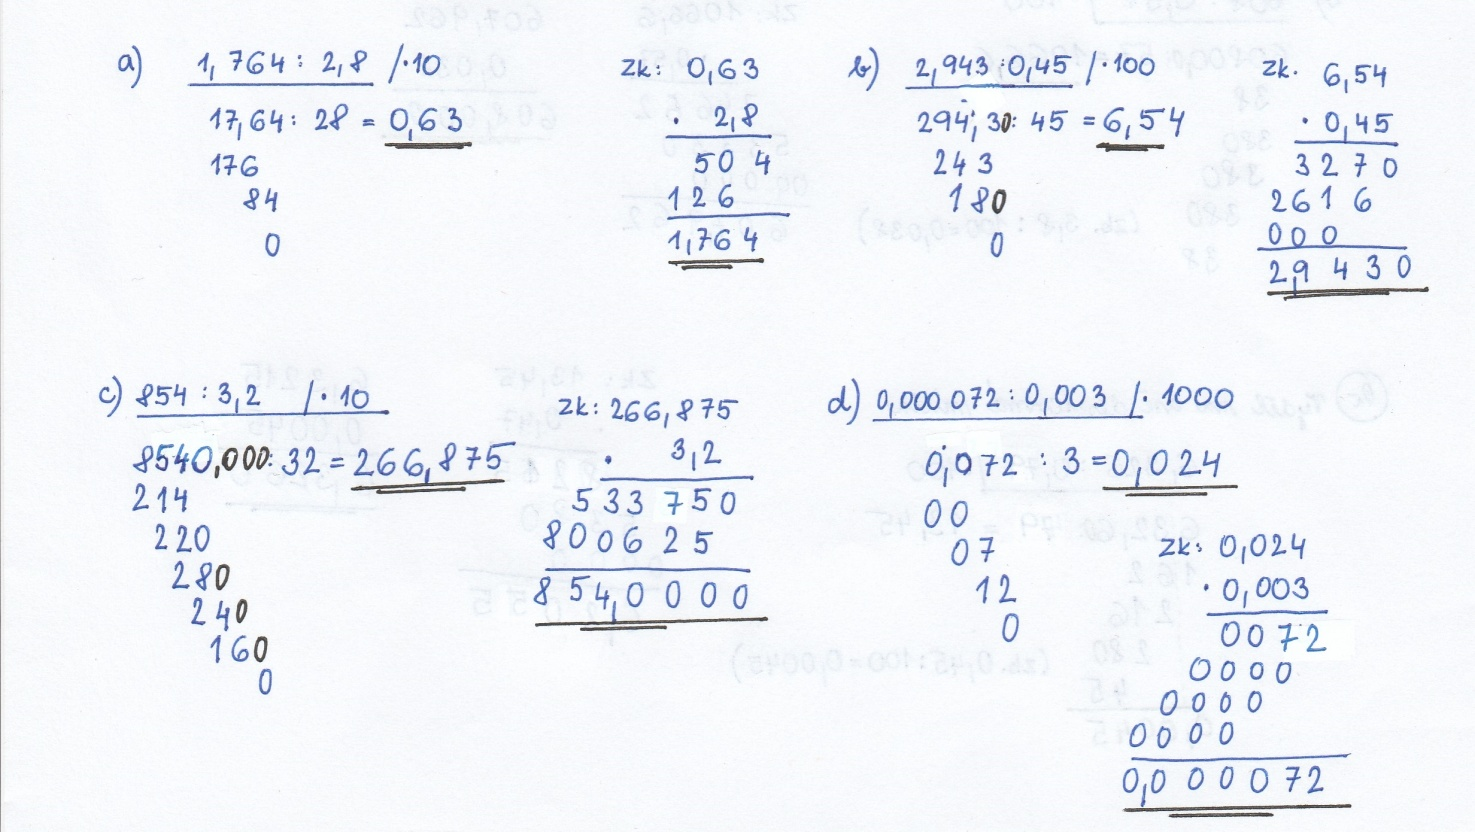 a) 1,764 : 2,8 /·10
17,64 : 28 = 0,63
176
84
0
zk: 0,63
· 2,8
504
126
1,764
b) 2,943 : 0,45 /·100
294,30 : 45 = 6,54
243
180
0
zk. 6,54
· 0,45
3270
2616
000
2,9430
c) 854 : 3,2 /·10
8540,000 : 32 = 266,875
214
220
280
240
160
0
zk: 266,875
· 3,2
533750
800625
854,0000
d) 0,000072 : 0,003 /·1000
0,072 : 3 = 0,024
00
07
12
0
zk: 0,024
· 0,003
0072
0000
0000
0000
0,000072